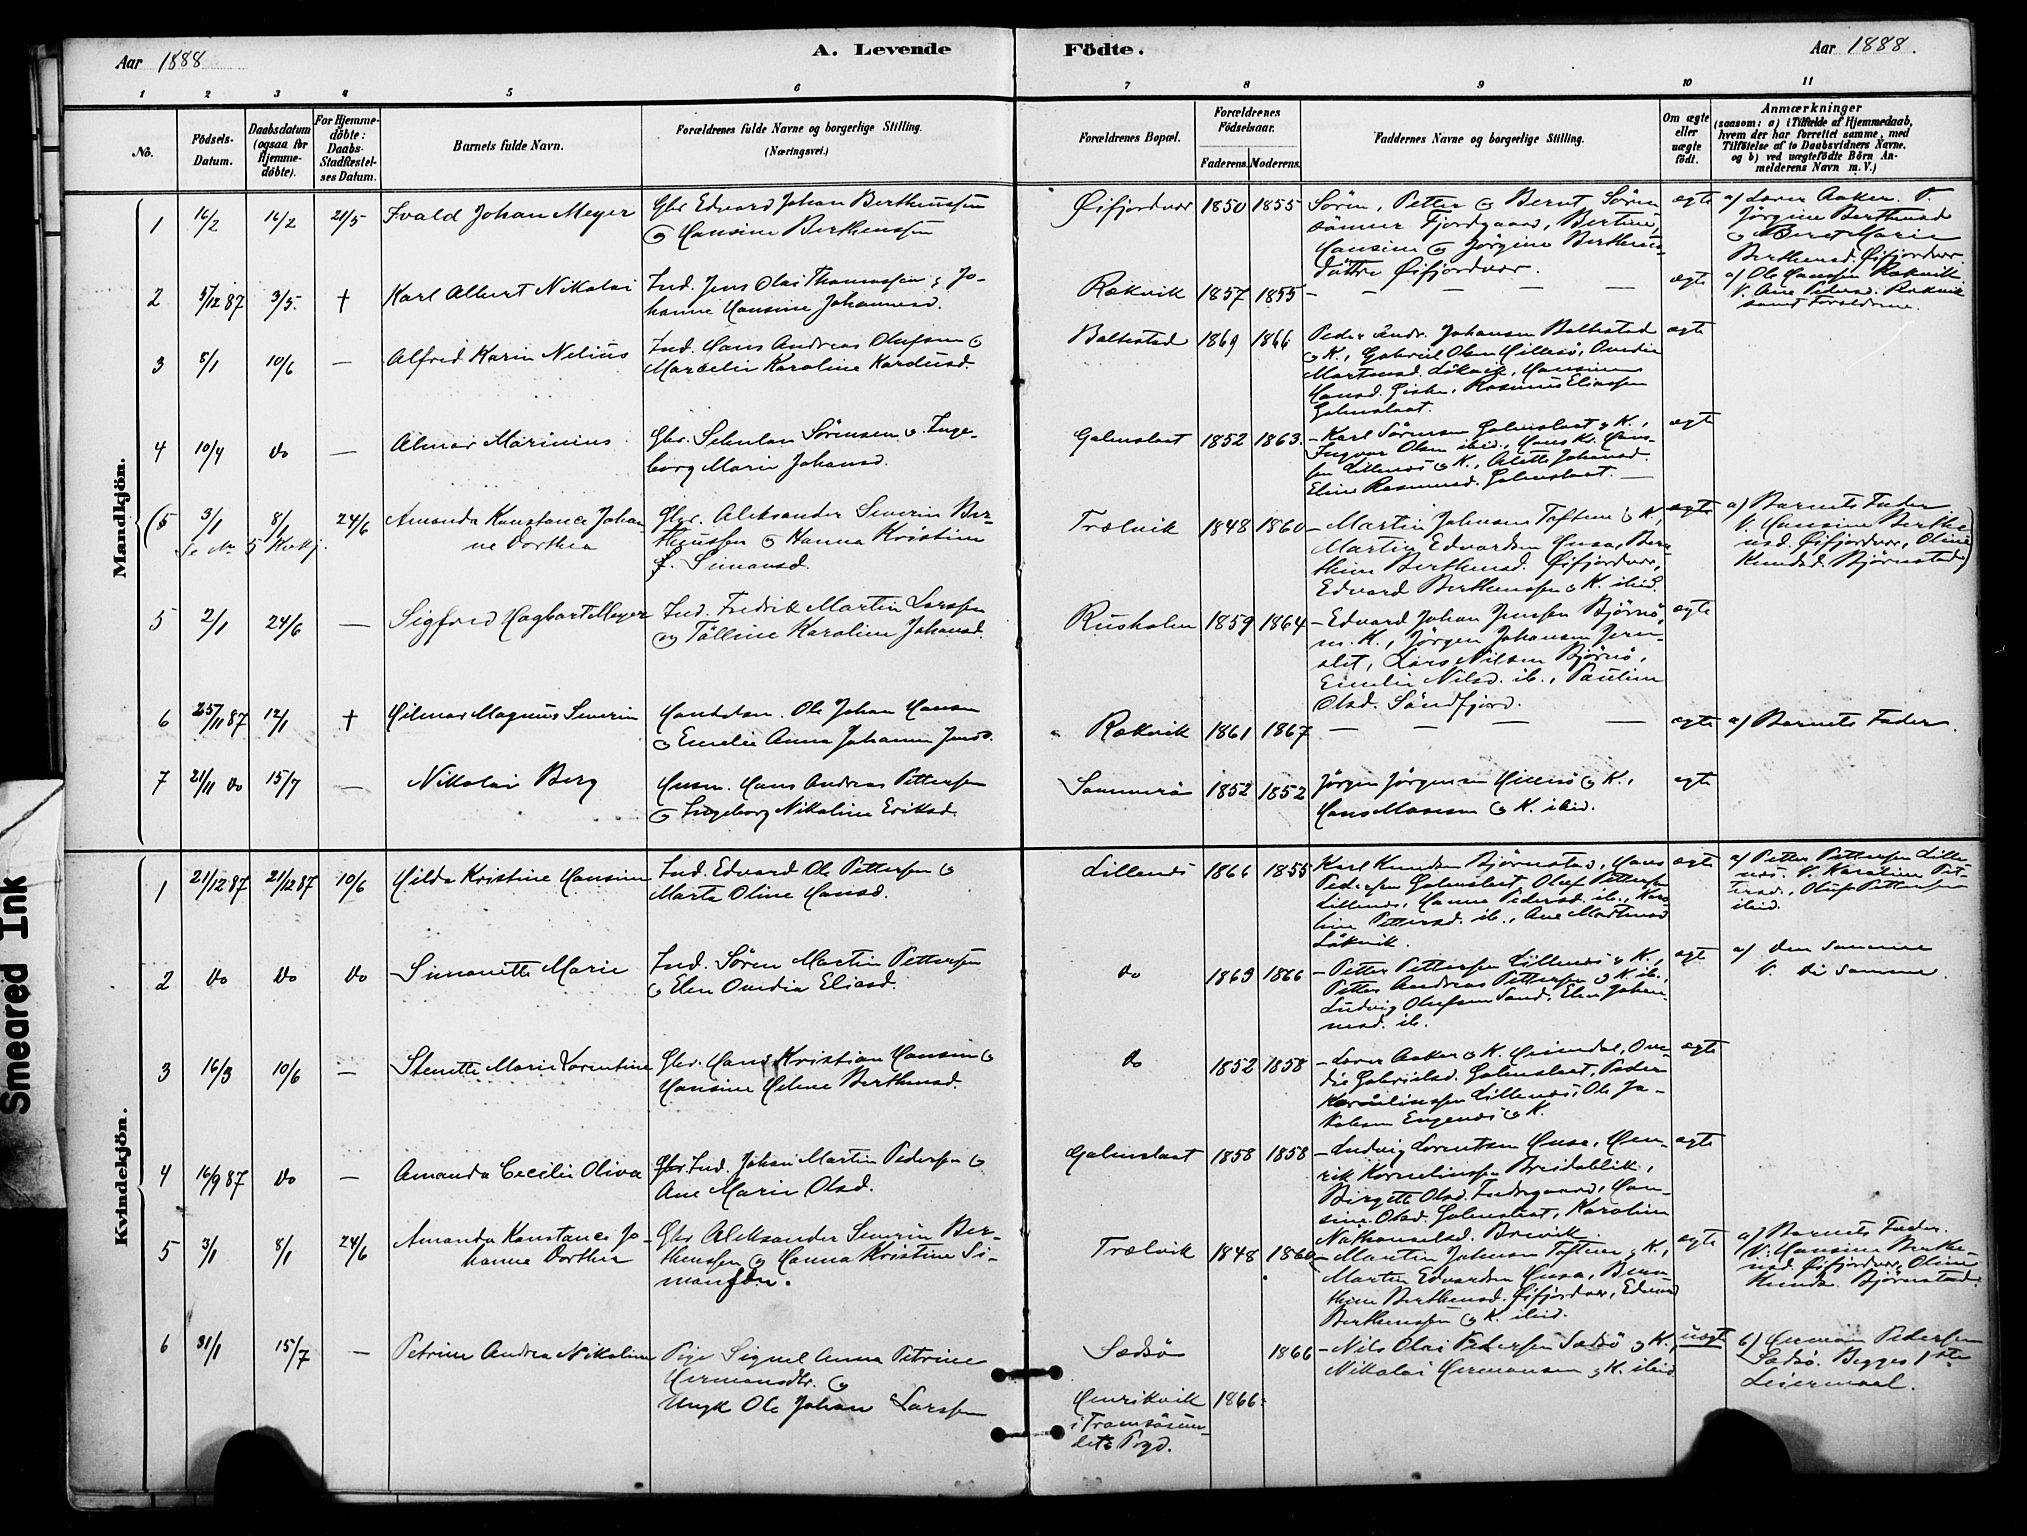 Aar 1888
A. Levende Födte.
Aar 1888.
1 2 3 4 5 6 7 8 9 10 11
No.
Födsels-Datum.
Daabsdatum (ogsaa for Hjemmedöbte).
For Hjemmedöbte: Daabs-Stadfæstelses Datum.
Barnets fulde Navn.
Forældrenes fulde Navne og borgerlige Stilling.
(Næringsvei.)
Forældrenes Bopæl.
Forældrenes Födselsaar.
Faderens. Moderens.
Faddernes Navne og borgerlige Stilling.
Om ægte eller uægte födt.
Anmærkninger
(saasom: a) i Tilfælde af Hjemmedaab,
hvem der har forrettet samme, med
Tilföielse af to Daabsvidners Navne.
og b) ved uægtefödte Börn An-
melderens Navn m. V.)
Mandkjön.
1 16/2 16/2 21/5 Ivald Johan Meyer Gbr Edvard Johan Bertheussen
& Hansine Berthenssen
Øifjordvær 1850 1855 Sören, Petter & Bernt Sören
sönner Fjordgaard, Bertine,
Hansine & Jörgine Bertheus
döttre Øifjordvær.
ægte a) Lærer Aaker. V.
Jörgine Bertheusd
& Beret Marie
Bertheusd. Øifjordvær
2 5/12 87 3/5 † Karl Albert Nikolai Ind. Jens Olai Thomassen & Jo-
hanne Hansine Johannesd.
Rækvik 1857 1855 — — — — —
ægte a) Ole Hansen Rækvik
V. Ane Pedersd. Rækvik
samt Forældrene.
3 8/1 10/6 — Alfred Karin Nelius Ind. Hans Andreas Olufsen &
Marselie Karoline Kardusd.
Baltestad 1869 1866 Peder Andr. Johansen Baltestad
& K., Gabriel Olsen Hillesö, Ovedia
Martinsd. Lökvik, Hansine
Hansd. Giska, Rasmus Eliassen
Galmslaat.
ægte
4 10/4 do — Almar Marinius Gbr. Schulan Sörensen & Inge-
borg Marie Johansd.
Galmslaat 1852 1863. — Karl Sörensen Galmslaat & K.,
Ingvar Olsen ibid., Hans K. Han-
sen Lillenes & K., Alette Johansd.
Eline Rasmusd. Galmslaat. —
ægte
(5 3/1 8/1 24/6 Amanda Konstance Johan
ne Dorthea
Se No 5 Kvkj.
Gbr. Aleksander Severin Ber-
theussen & Hanna Kristine
f. Simonsd.
Trælvik 1848 1860 — Martin Johnsen Toften & K.,
Martin Edvardsen Husa, Bern-
thine Bertheusd. Øifjordvær,
Edvard Bertheussen & K. ibid.
ægte a) Barnets Fader
V. Hansine Berthe-
usd. Øifjordvær, Oline
Knudsd. Bjørnstad)
5 2/1 24/6 — Sigford Hagbart Meyer Ind. Fredrik Martin Larssen
& Tolline Karoline Johansd.
Rusholm 1859 1864 — Edvard Johan Jenssen Bjørnø,
m. K., Jørgen Johansen Jern-
slet, Lars Nilsen Bjørnø,
Emelie Nilsd. ib., Pauline
Olsd. Sandfjord.
ægte
6 25/11 87 12/1 † Hilmar Magnus Severin Handelsm. Ole Johan Hansen
& Emelie Anna Johanne Jensd.
Rækvik 1861 1867 — — — —
ægte a) Barnets Fader.
7 21/11 do 15/7 — Nikolai Berg Husm. Hans Andreas Pettersen
& Ingeborg Nikoline Eriksd.
Sommerö 1852 1852 Jörgen Jörgensen Hillesö & K.,
Hans Mosesen & K. ibid.
ægte
Kvindekjön.
1 21/12 87 21/12 87 10/6 Hilda Kristine Hansine Ind. Edvard Ole Pettersen &
Marta Oline Hansd.
Lillenes 1866 1855 Karl Knudsen Bjørnstad, Hans
Pedersen Galmslaat, Oluf Pettersen
Lillenes, Hanna Pedersd. ib., Karo-
line Pettersd. ib., Ane Martinsd
Lökvik.
ægte a) Petter Pettersen Lille-
nes. V. Karoline Pet-
tersd., Oluf Pettersen
ibid.
2 do do do Simonette Marie Ind. Sören Martin Pettersen
& Elen Ovedia Eliasd.
do 1863 1866 — Petter Pettersen Lillenes & K.,
Petter Andreas Pettersen & K. ib.,
Ludvig Olufsen Sand, Elen Johan-
nesd. ib.
ægte a) den samme
V. de samme.
3 16/3 10/6 — Stenette Marie Lorentine Gbr. Hans Kristian Hansen &
Hansine Helene Bertheusd.
do 1852 1858 — Lærer Aaker & K. Heimdal, Ove-
die Gabrielsd. Galmslaat, Peder
Korneliussen Lillenes, Ole Ja-
kobsen Engenes & K.
ægte
4 16/9 87 do — Amanda Cecilie Oliva Gbr. Ind. Johan Martin Pedersen &
Ane Marie Olsd.
Galmslaat 1858 1858 — Ludvig Lorentsen Husa, Hen-
rik Korneliussen Breidablik,
Birgitte Olsd. Indregaard, Han-
sine Olsd. Galmslaat, Karoline
Nathanaelsd. Brevik.
ægte
5 3/1 8/1 24/6 Amanda Konstance Jo
hanne Dorthea
Gbr Aleksander Severin Ber-
theussen & Hanna Kristine Si-
monsdtr.
Trælvik 1848 1860 — Martin Johnsen Toften & K.,
Martin Edvardsen Husa, Bern-
thine Bertheusd. Øifjordvær, Edvard
Bertheussen & K. ibid.
ægte a) Barnets Fader.
V. Hansine Berthe-
usd. Øifjordvær, Oline
Knudsd. Bjørnstad.
6 31/1 15/7 — Petrine Andrea Nikoline Pige Signel Anna Petrine
Hermansdtr. &
Ungk Ole Johan Larssen
Sædsö 1866
Henrikvik 1866
i Tromsösun-
dets Prgd.
— Nils Olai Pedersen Sædsö & K.,
Nikolai Hermansen & K. ibid
uægte b) Herman Pedersen
Sædsö. Begges 1ste
Leiermaal.
Smeared Ink